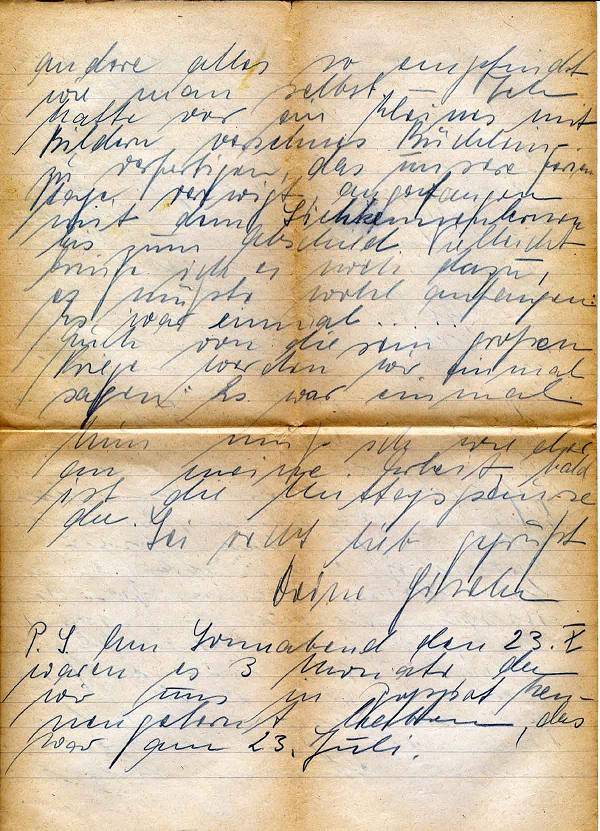 andere alles so empfindet
wie man selbst. — Ich
hatte vor ein kleines mit
Bildern versehnes Büchlein
zu verfertigen, das unsere Ferien
tage verewigt, angefangen
mit dem Sichkennenlernen
bis zum Abschied, vielleicht
bringe ich es noch dazu,
es müßte wohl anfangen:
Es war einmal......
Auch von diesem großen
Kriege werden wir einmal
sagen: Es war einmal.
Nun muß ich wieder
an meine Arbeit, bald
ist die Mittagspause
da. Sei recht lieb gegrüßt
Deine Gisela
P.S. Am Sonnabend den 23. X
waren es 3 Monate da
wir uns in Zoppot ken-
nengelernt hatten, das
war am 23. Juli.